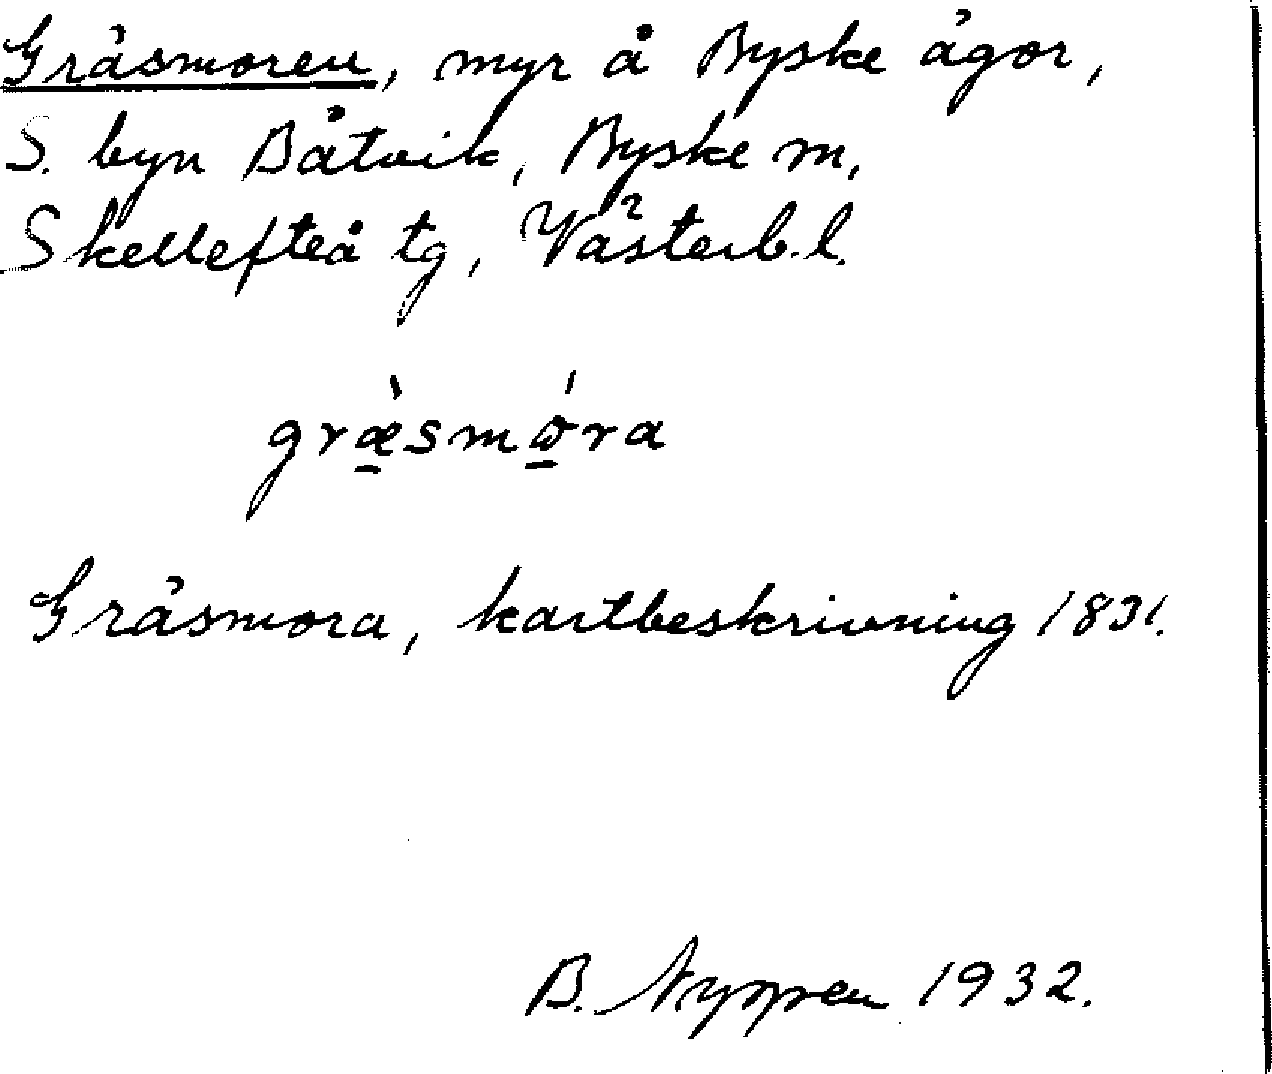 Gräsmoren, myr å Byske ägor,
S. byn Båtvik, Byske m,
Skellefteå tg, Västerb. l.
græ̱̀smώ̱ra
Gräsmora, kartbeskrivning 1831.
B. 1932.